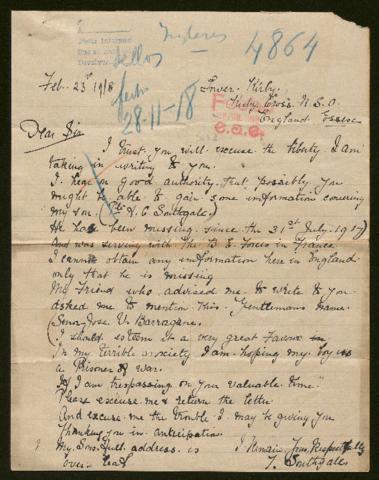 Ingleses 4864
Feb. 23rd 1918
Inver-Kirby,
Kirby Cross. R.S.O.
England Essex
28-11-18
e.a.e.
Dear Sir
I trust you will excuse the liberty I am
taking in writing to you.
I hear on good authority that possibly you
might be able to gain some information concerning
my son. (Pte A. C. Southgate)
He has been missing since the 31st July 1917
And was serving with the B. E. Forces in France
I cannot obtain any information here in England
only that he is missing
My Friend who advised me to write to you
asked me to mention this Gentlemans name.
(Senor Jose. V. Barragane.)
I should esteem it a very great favour
In my terrible anxiety I am hoping my boy is
a Prisoner of war.
If I am trespassing on your valuable time
Please excuse me & return the letter
And excuse me the trouble I may be giving you
Thanking you in anticipation
I Remain, Yours Respectfully
T. Southgate
My Sons full address is
over leaf